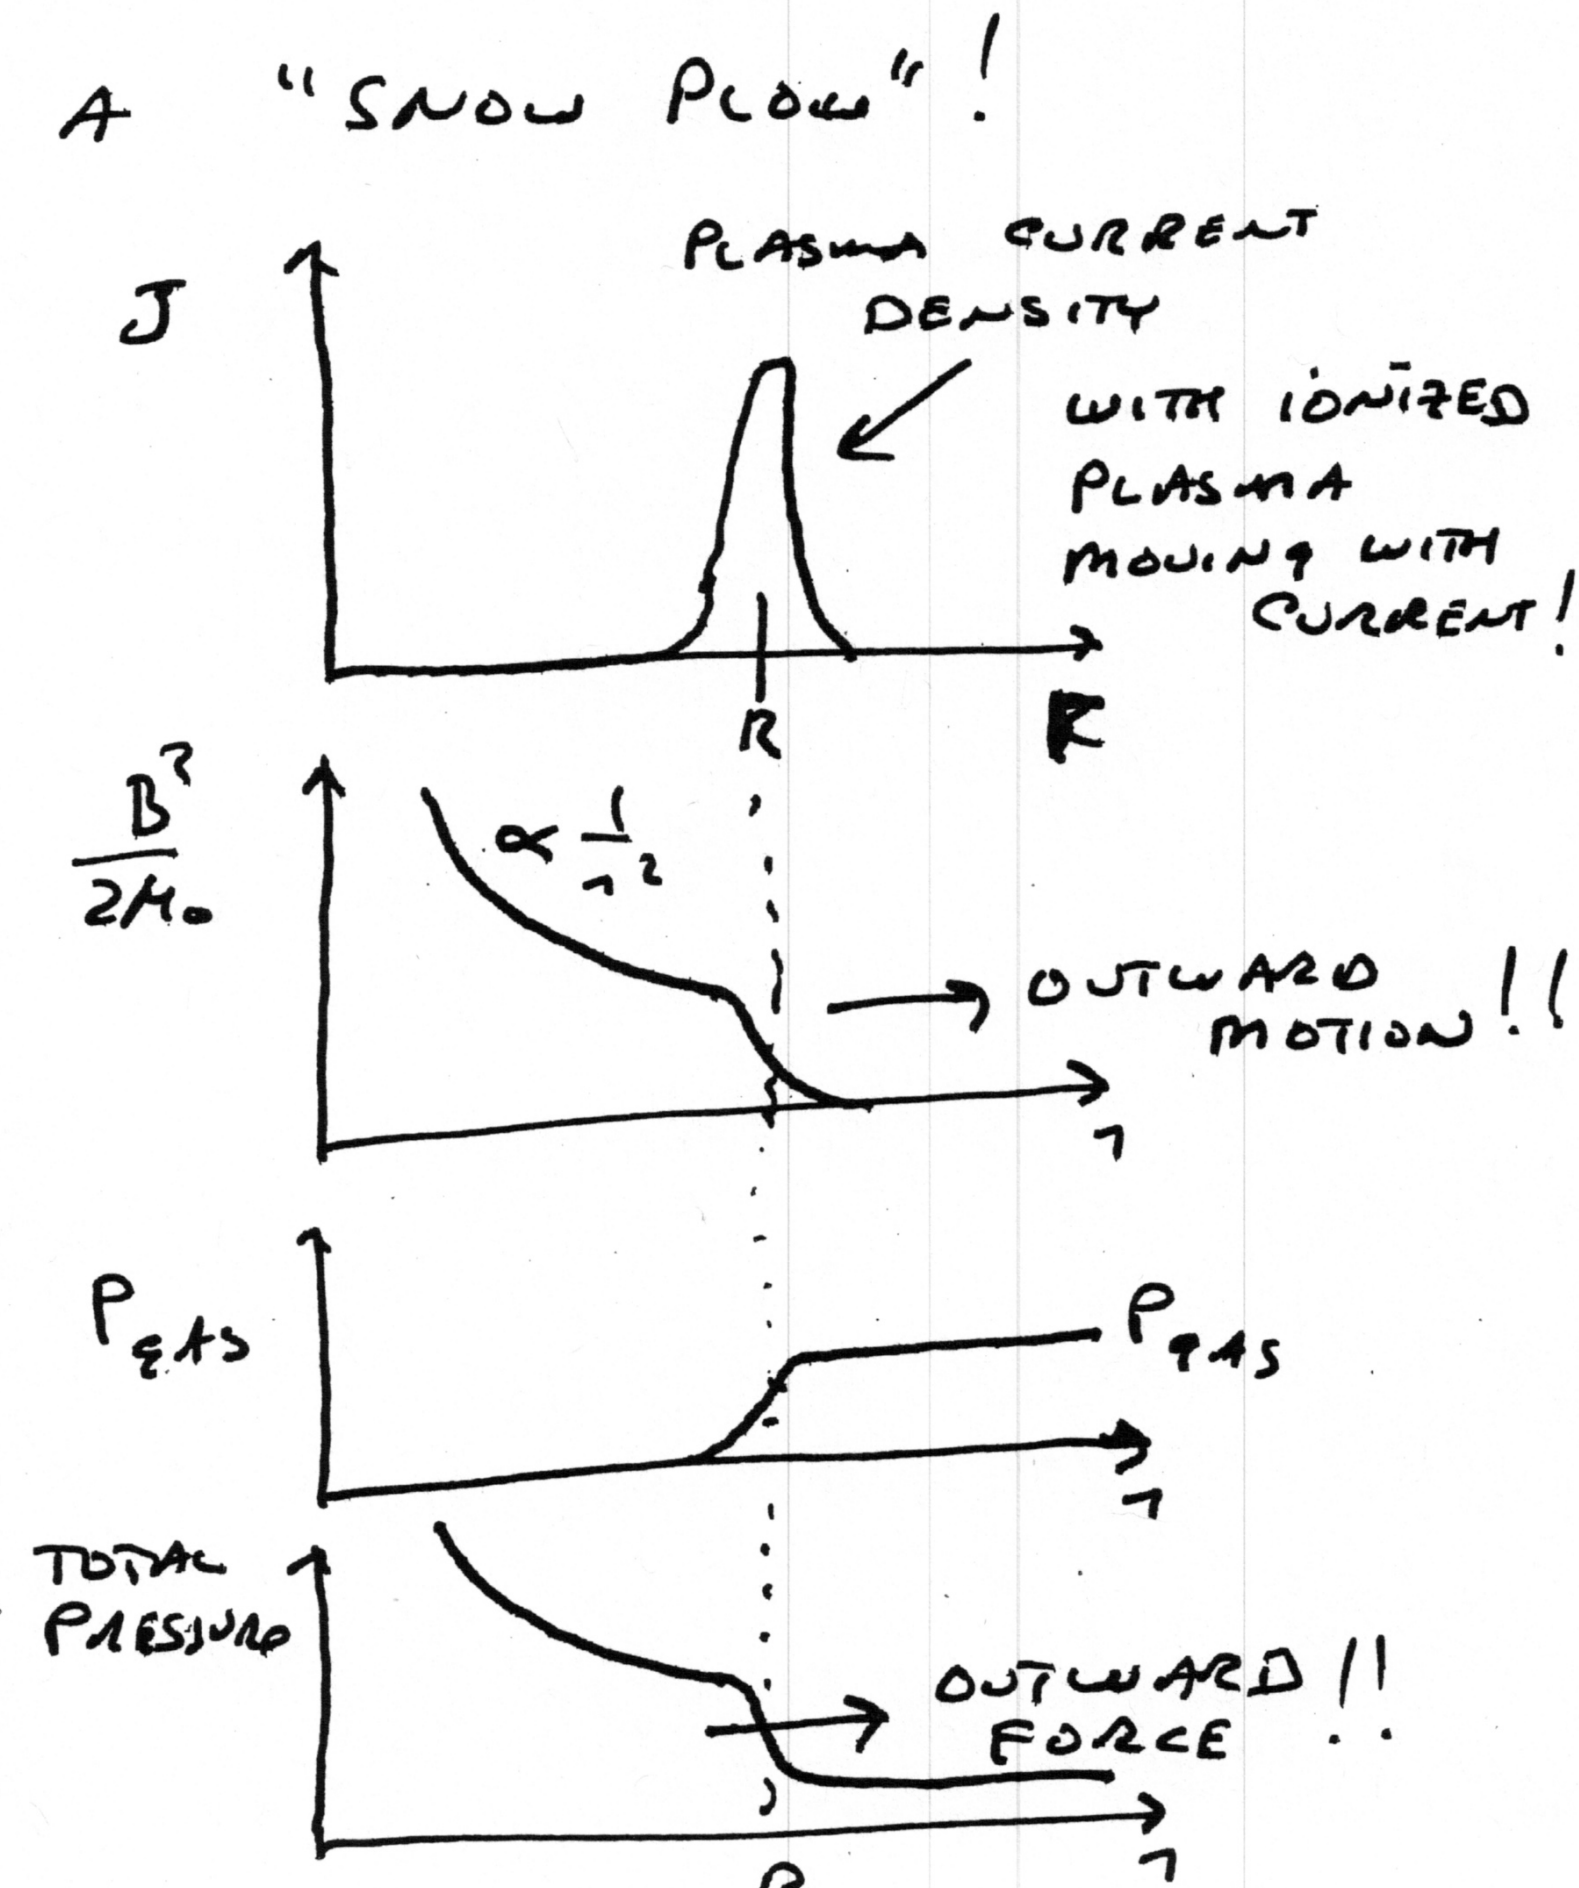 A "SNOW PLOW"!
PLASMA CURRENT
DENSITY
J
WITH IONIZED
PLASMA
MOVING WITH
CURRENT!
R
B²
2μ₀
∝ 1
r²
OUTWARD
MOTION!!
r
P gas
P gas
r
TOTAL
PRESSURE
OUTWARD!!
FORCE
r
R